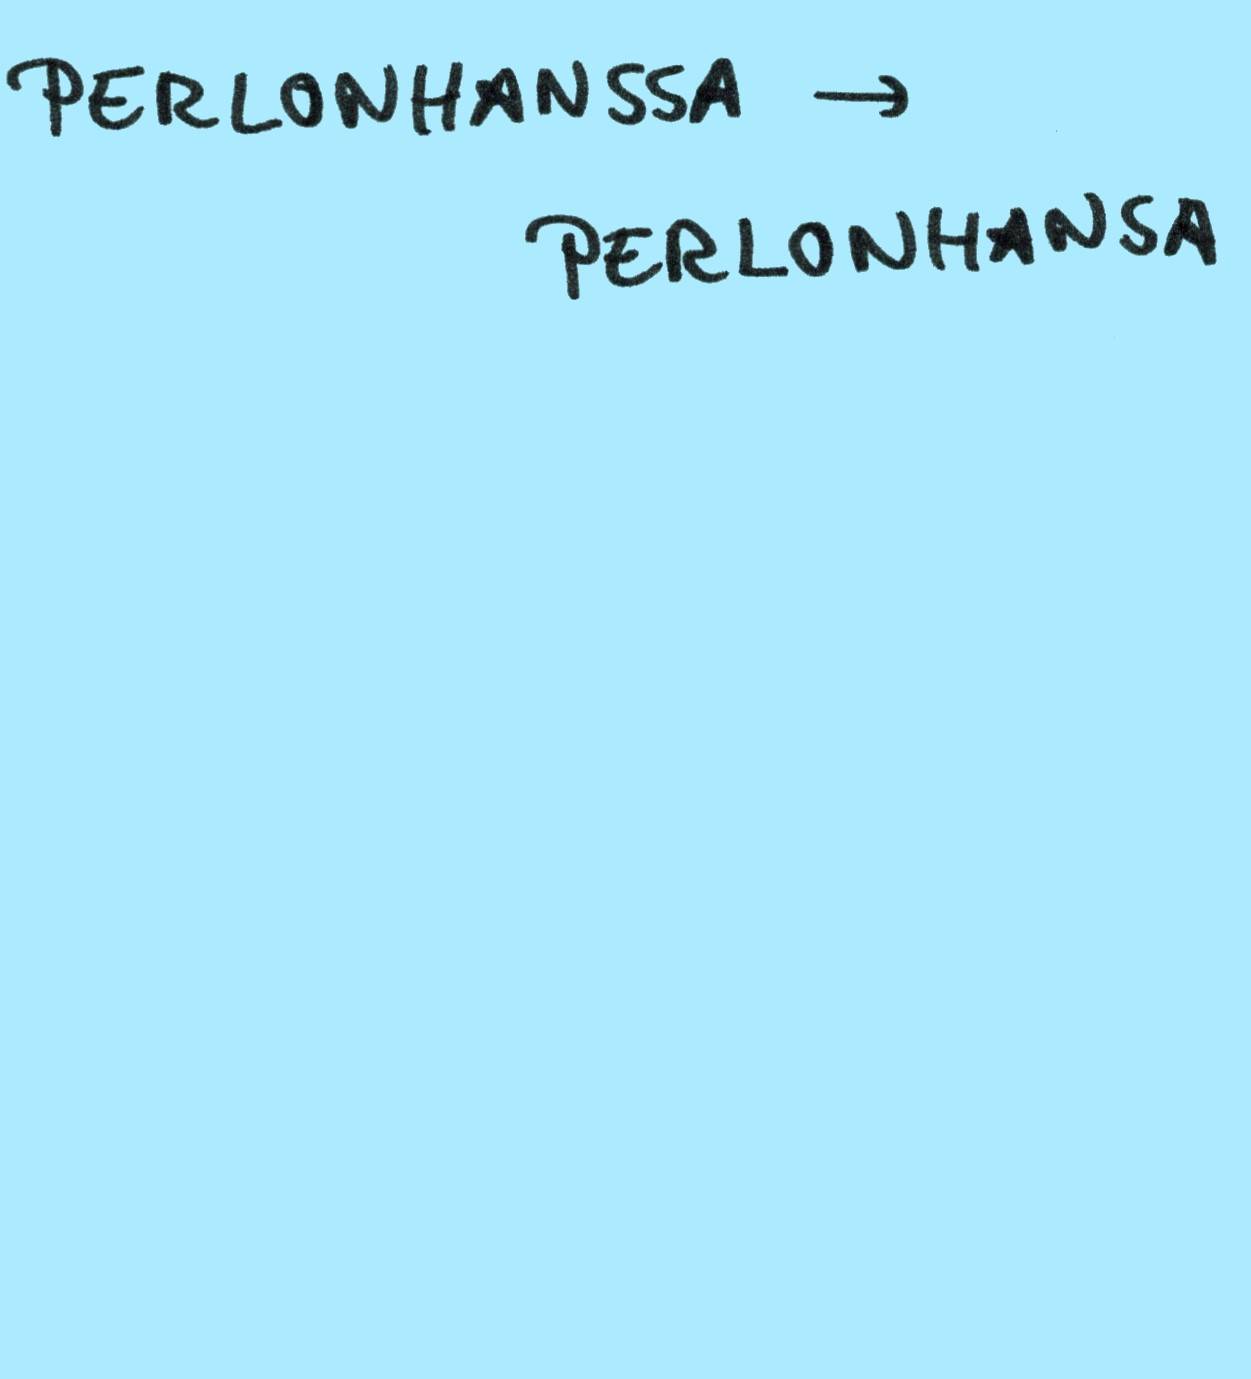 PERLONHANSSA →
PERLONHANSA